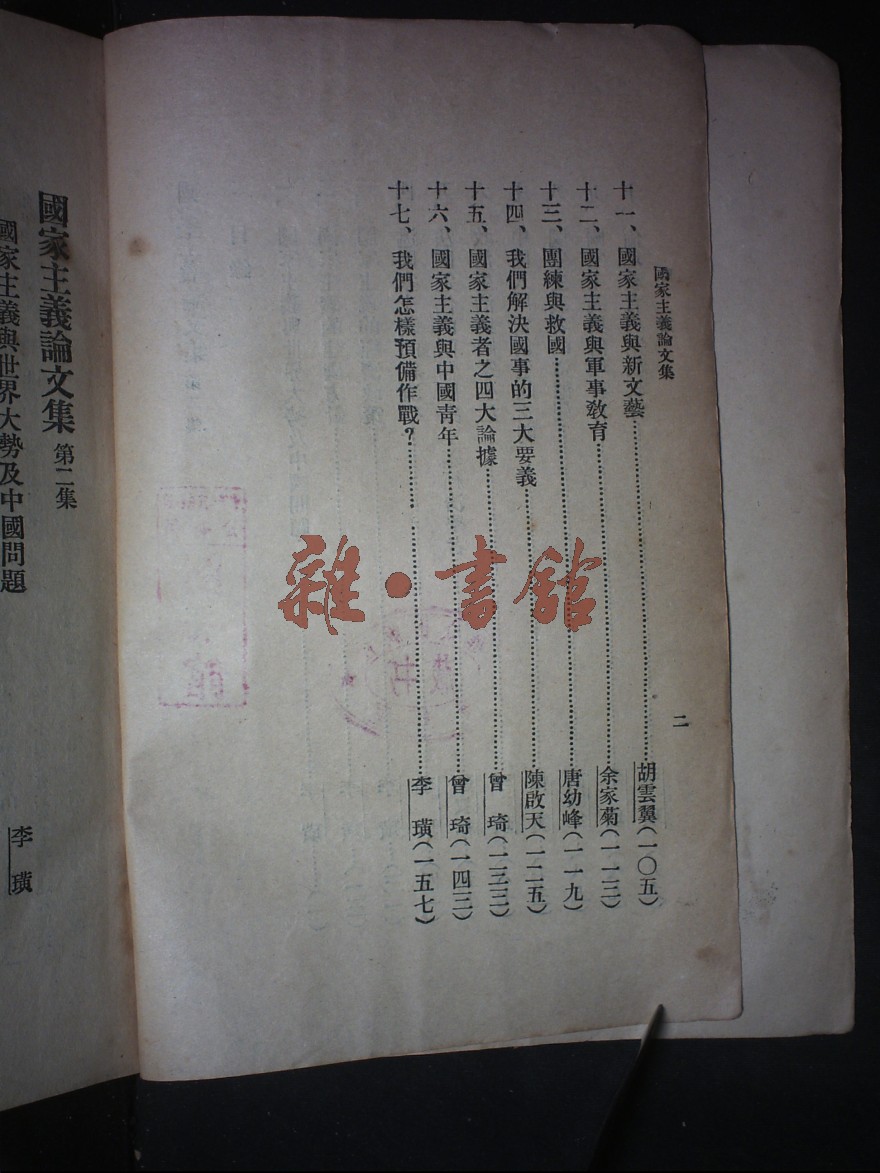 國家主義論文集
二
十一、國家主義與新文藝……胡雲翼(一〇五)
十二、國家主義與軍事敎育……余家菊(一一三)
十三、團練與救國……唐幼峰(一一九)
十四、我們解決國事的三大要義……陳啟天(一二五)
十五、國家主義者之四大論據……曾琦(一三三)
十六、國家主義與中國靑年……曾琦(一四三)
十七、我們怎樣預備作戰?……李璜(一五七)
國家主義論文集 第二集
國家主義與世界大勢及中國問題
李璜
雜·書館